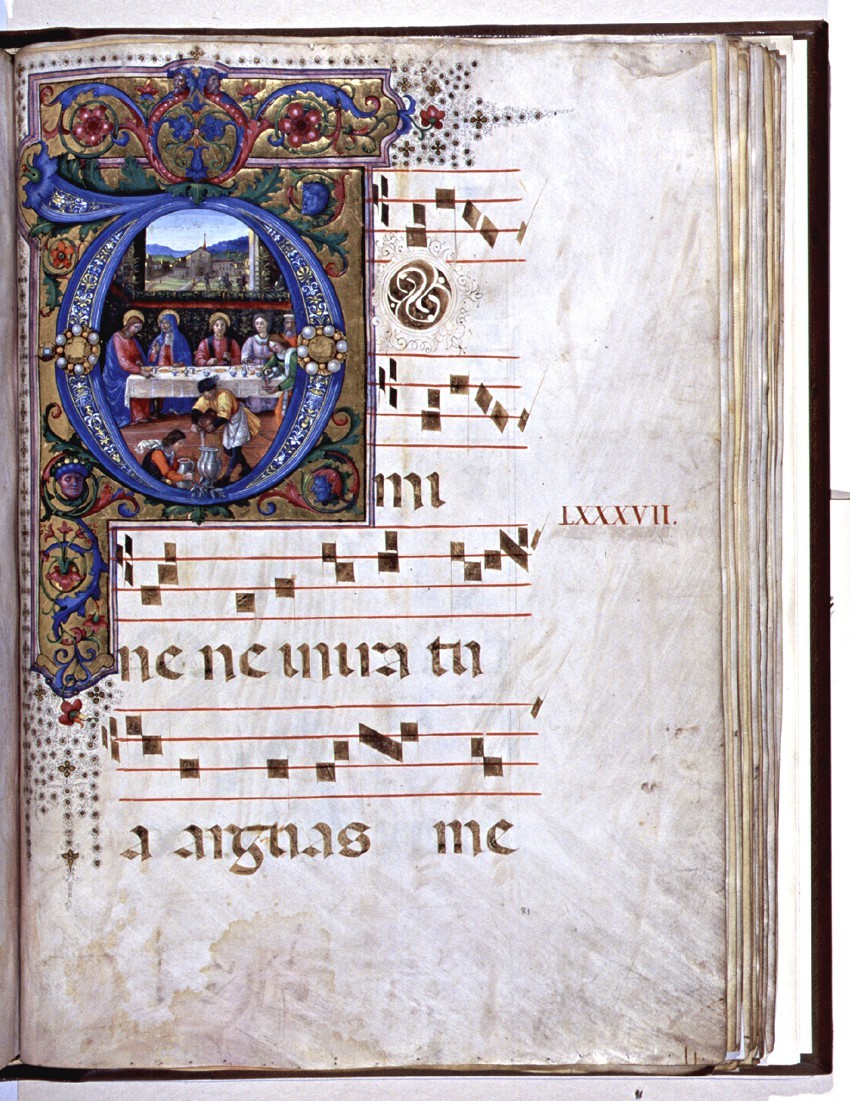 DO
mi
LXXXVII.
ne ne in ira tu
a arguas me